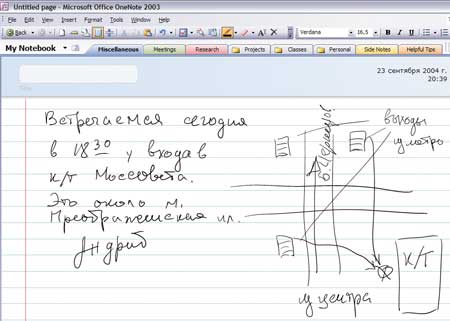 Untitled page - Microsoft Office OneNote 2003
File Edit View Insert Format Tools Window Help
Back Verdana 16,5 B
My Notebook Miscellaneous Meetings Research Projects Classes Personal Side Notes Helpful Tips
23 сентября 2004 г.
20:39
Встречаемся сегодня
в 18 30 у входа в
к/т Моссовета.
Это около м.
Преображенская пл.
Андрей
выходы
из метро
К/Т
из центра